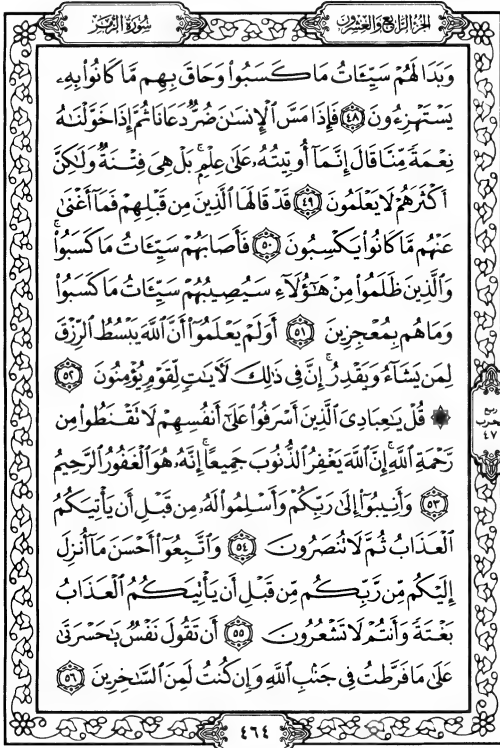 الجزء الرابع والعشرون
سورة الزمر
وَبَدَا لَهُمْ سَيِّـَٔاتُ مَا كَسَبُوا۟ وَحَاقَ بِهِم مَّا كَانُوا۟ بِهِۦ
يَسْتَهْزِءُونَ ٤٨ فَإِذَا مَسَّ ٱلْإِنسَٰنَ ضُرٌّ دَعَانَا ثُمَّ إِذَا خَوَّلْنَٰهُ
نِعْمَةً مِّنَّا قَالَ إِنَّمَآ أُوتِيتُهُۥ عَلَىٰ عِلْمٍۭ ۚ بَلْ هِىَ فِتْنَةٌ وَلَٰكِنَّ
أَكْثَرَهُمْ لَا يَعْلَمُونَ ٤٩ قَدْ قَالَهَا ٱلَّذِينَ مِن قَبْلِهِمْ فَمَآ أَغْنَىٰ
عَنْهُم مَّا كَانُوا۟ يَكْسِبُونَ ٥٠ فَأَصَابَهُمْ سَيِّـَٔاتُ مَا كَسَبُوا۟ ۚ
وَٱلَّذِينَ ظَلَمُوا۟ مِنْ هَٰٓؤُلَآءِ سَيُصِيبُهُمْ سَيِّـَٔاتُ مَا كَسَبُوا۟
وَمَا هُم بِمُعْجِزِينَ ٥١ أَوَلَمْ يَعْلَمُوٓا۟ أَنَّ ٱللَّهَ يَبْسُطُ ٱلرِّزْقَ
لِمَن يَشَآءُ وَيَقْدِرُ ۚ إِنَّ فِى ذَٰلِكَ لَءَايَٰتٍ لِّقَوْمٍ يُؤْمِنُونَ ٥٢
۞ قُلْ يَٰعِبَادِىَ ٱلَّذِينَ أَسْرَفُوا۟ عَلَىٰٓ أَنفُسِهِمْ لَا تَقْنَطُوا۟ مِن
رَّحْمَةِ ٱللَّهِ ۚ إِنَّ ٱللَّهَ يَغْفِرُ ٱلذُّنُوبَ جَمِيعًا ۚ إِنَّهُۥ هُوَ ٱلْغَفُورُ ٱلرَّحِيمُ
٥٣ وَأَنِيبُوٓا۟ إِلَىٰ رَبِّكُمْ وَأَسْلِمُوا۟ لَهُۥ مِن قَبْلِ أَن يَأْتِيَكُمُ
ٱلْعَذَابُ ثُمَّ لَا تُنصَرُونَ ٥٤ وَٱتَّبِعُوٓا۟ أَحْسَنَ مَآ أُنزِلَ
إِلَيْكُم مِّن رَّبِّكُم مِّن قَبْلِ أَن يَأْتِيَكُمُ ٱلْعَذَابُ
بَغْتَةً وَأَنتُمْ لَا تَشْعُرُونَ ٥٥ أَن تَقُولَ نَفْسٌ يَٰحَسْرَتَىٰ
عَلَىٰ مَا فَرَّطتُ فِى جَنۢبِ ٱللَّهِ وَإِن كُنتُ لَمِنَ ٱلسَّٰخِرِينَ ٥٦
حزب
٤٧
٤٦٤